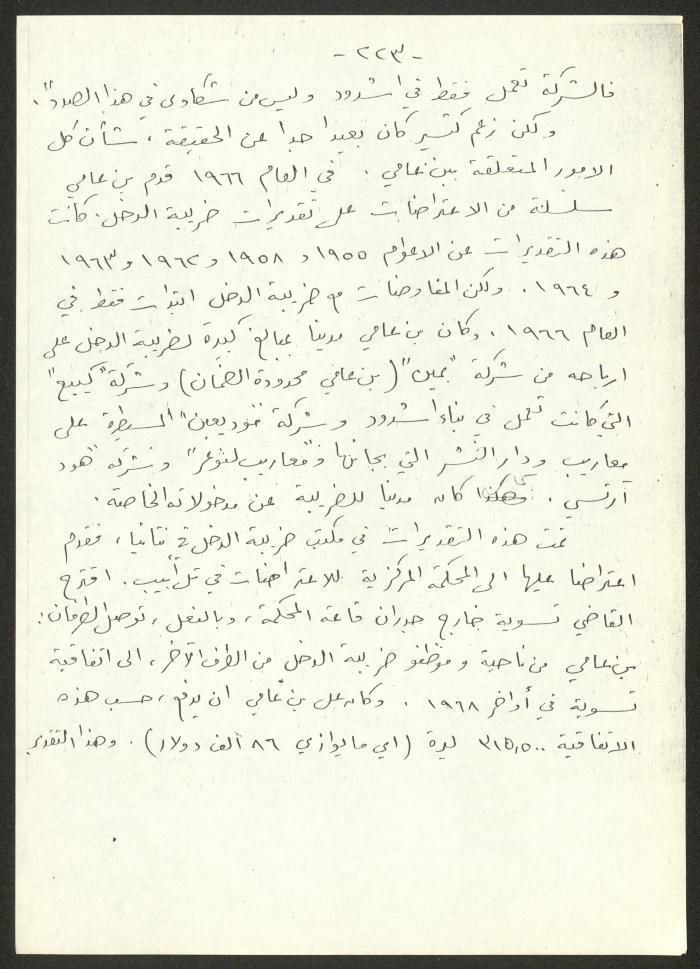 -٢٢٣-
فالشركة تعمل فقط في اشدود وليس من شكاوى في هذا الصدد".
ولكن زعم كتسير كان بعيدا جدا عن الحقيقة، شأن كل
الامور المتعلقة ببن عامي. في العام ١٩٦٦ قدم بن عامي
سلسلة من الاعتراضات على تقديرات ضريبة الدخل. كانت
هذه التقديرات عن الاعوام ١٩٥٥ و ١٩٥٨ و ١٩٦٢ و ١٩٦٣
و ١٩٦٤. ولكن المفاوضات مع ضريبة الدخل ابتدأت فقط في
العام ١٩٦٦. وكان بن عامي مدينا بمبالغ كبيرة لضريبة الدخل على
ارباحه من شركة "بمين" (بن عامي محدودة الضمان) وشركة "كيبع"
التي كانت تعمل في بناء اشدود وشركة "موديعين" المسيطرة على
معاريب ودار النشر التي بجانبها و"معاريب لنوعر" وشركة "هود
آرتسي. كان مدينا للضريبة عن مدخولاته الخاصة.
تمت هذه التقديرات في مكتب ضريبة الدخل في نتانيا، فقدم
اعتراضا عليها الى المحكمة المركزية للاعتراضات في تل أبيب. اقترح
القاضي تسوية خارج جدران قاعة المحكمة، وبالفعل، توصل الطرفان:
بن عامي من ناحية وموظفو ضريبة الدخل من الطرف الآخر، الى اتفاقية
تسوية في أواخر ١٩٦٨. وكان على بن عامي ان يدفع، حسب هذه
الاتفاقية ٣١٥,٥٠٠ ليرة (اي ما يوازي ٨٦ الف دولار). وهذا التقدير